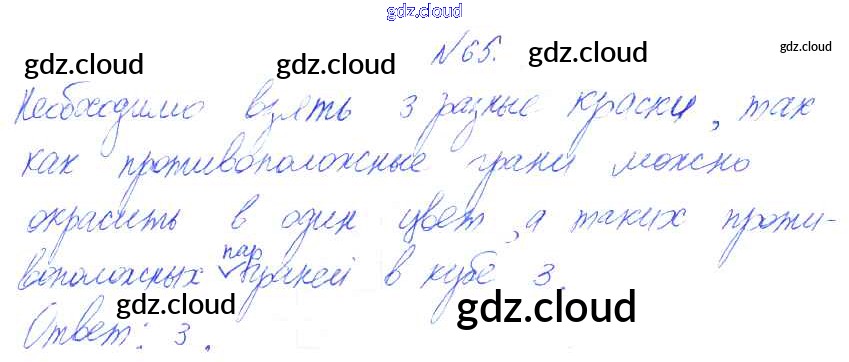 gdz.cloud
№65.
gdz.cloud gdz.cloud gdz.cloud gdz.cloud
Необходимо взять 3 разные краски, так
как противоположные грани можно
окрасить в один цвет, а таких проти-
воположных пар граней в кубе 3.
gdz.cloud gdz.cloud gdz.cloud
Ответ: 3.